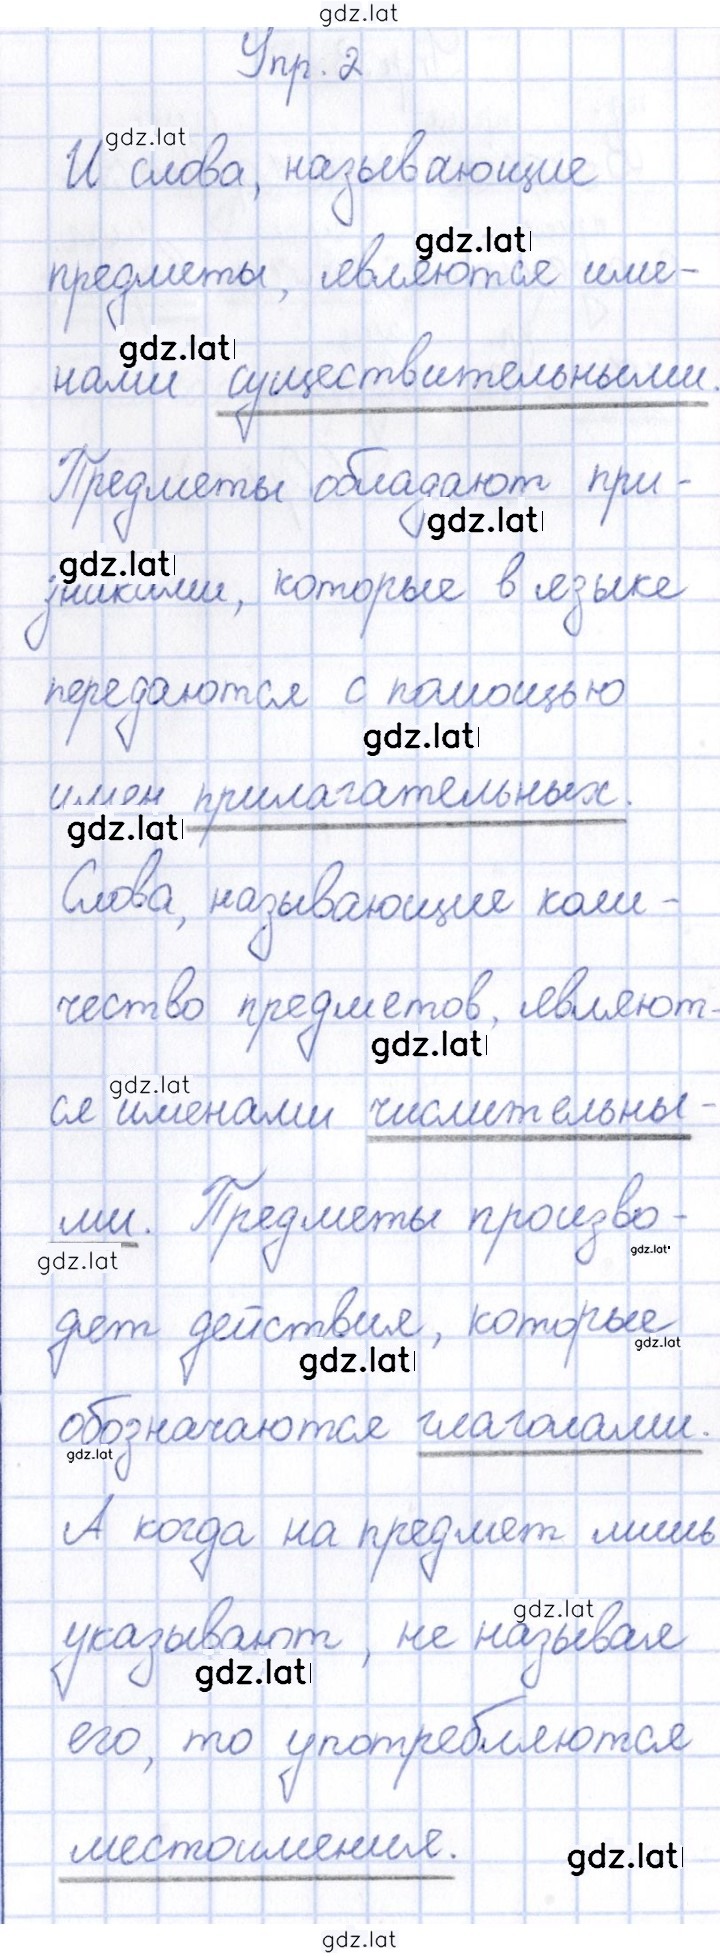 gdz.lat
Упр. 2
gdz.lat
И слова, называющие
gdz.lat
предметы, являются име-
gdz.lat
нами существительными.
Предметы обладают при-
gdz.lat
gdz.lat
знаками, которые в языке
передаются с помощью
gdz.lat
имен прилагательных.
gdz.lat
Слова, называющие коли-
чество предметов, являют-
gdz.lat
gdz.lat
ся именами числительны-
ми. Предметы произво-
gdz.lat
gdz.lat
дят действия, которые
gdz.lat
gdz.lat
обозначаются глаголами.
gdz.lat
А когда на предмет лишь
gdz.lat
указывают, не называя
gdz.lat
его, то употребляются
местоимения.
gdz.lat
gdz.lat